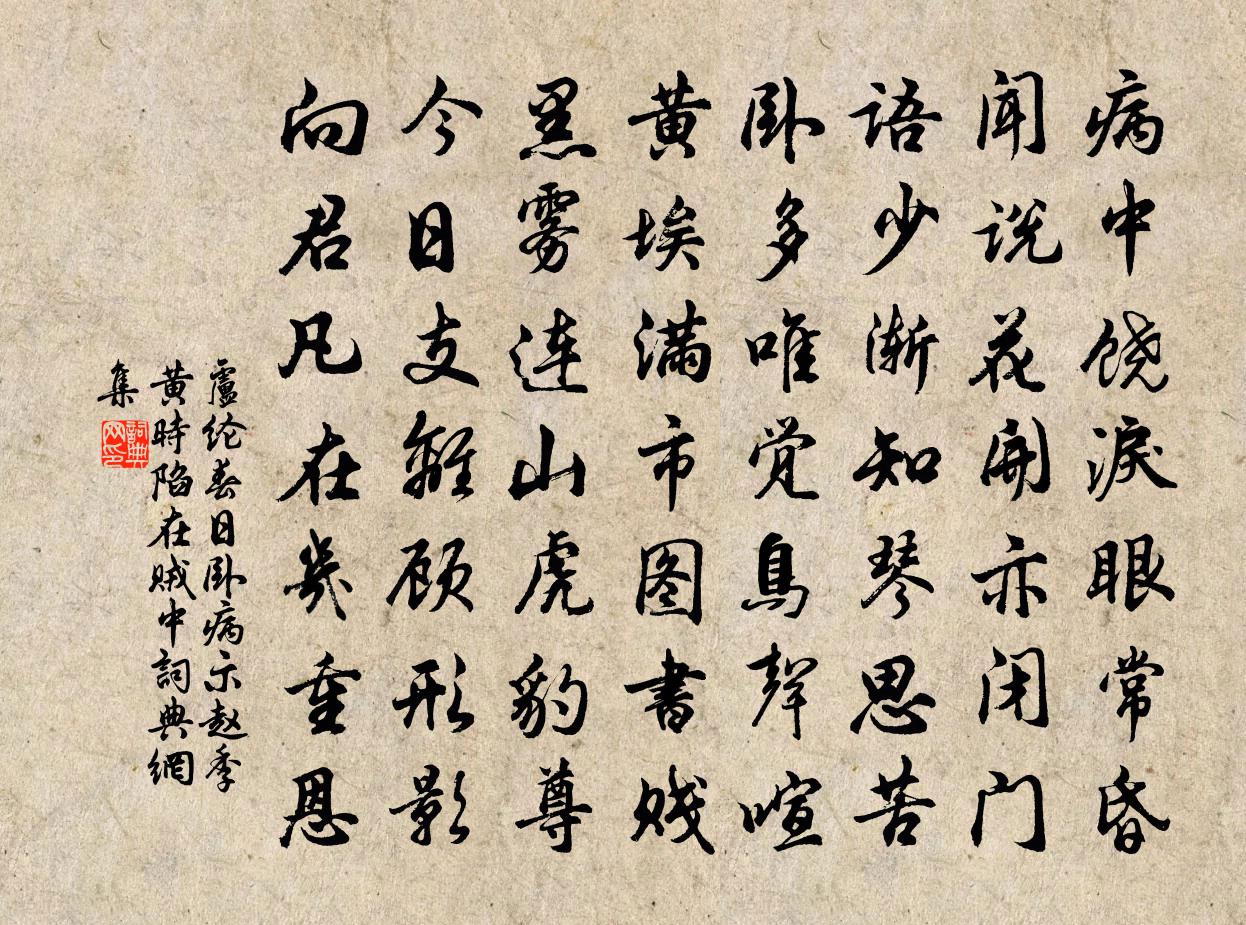 病中饶淚眼常昏
闻说花開亦闭门
语少渐知琴思苦
卧多唯觉鳥聲喧
黄埃满市图書贱
黑雾连山虎豹尊
今日支離顾形影
向君凡在幾重恩
盧纶春日卧病示赵季
黄時陷在贼中詞典網
集
詞典
网印